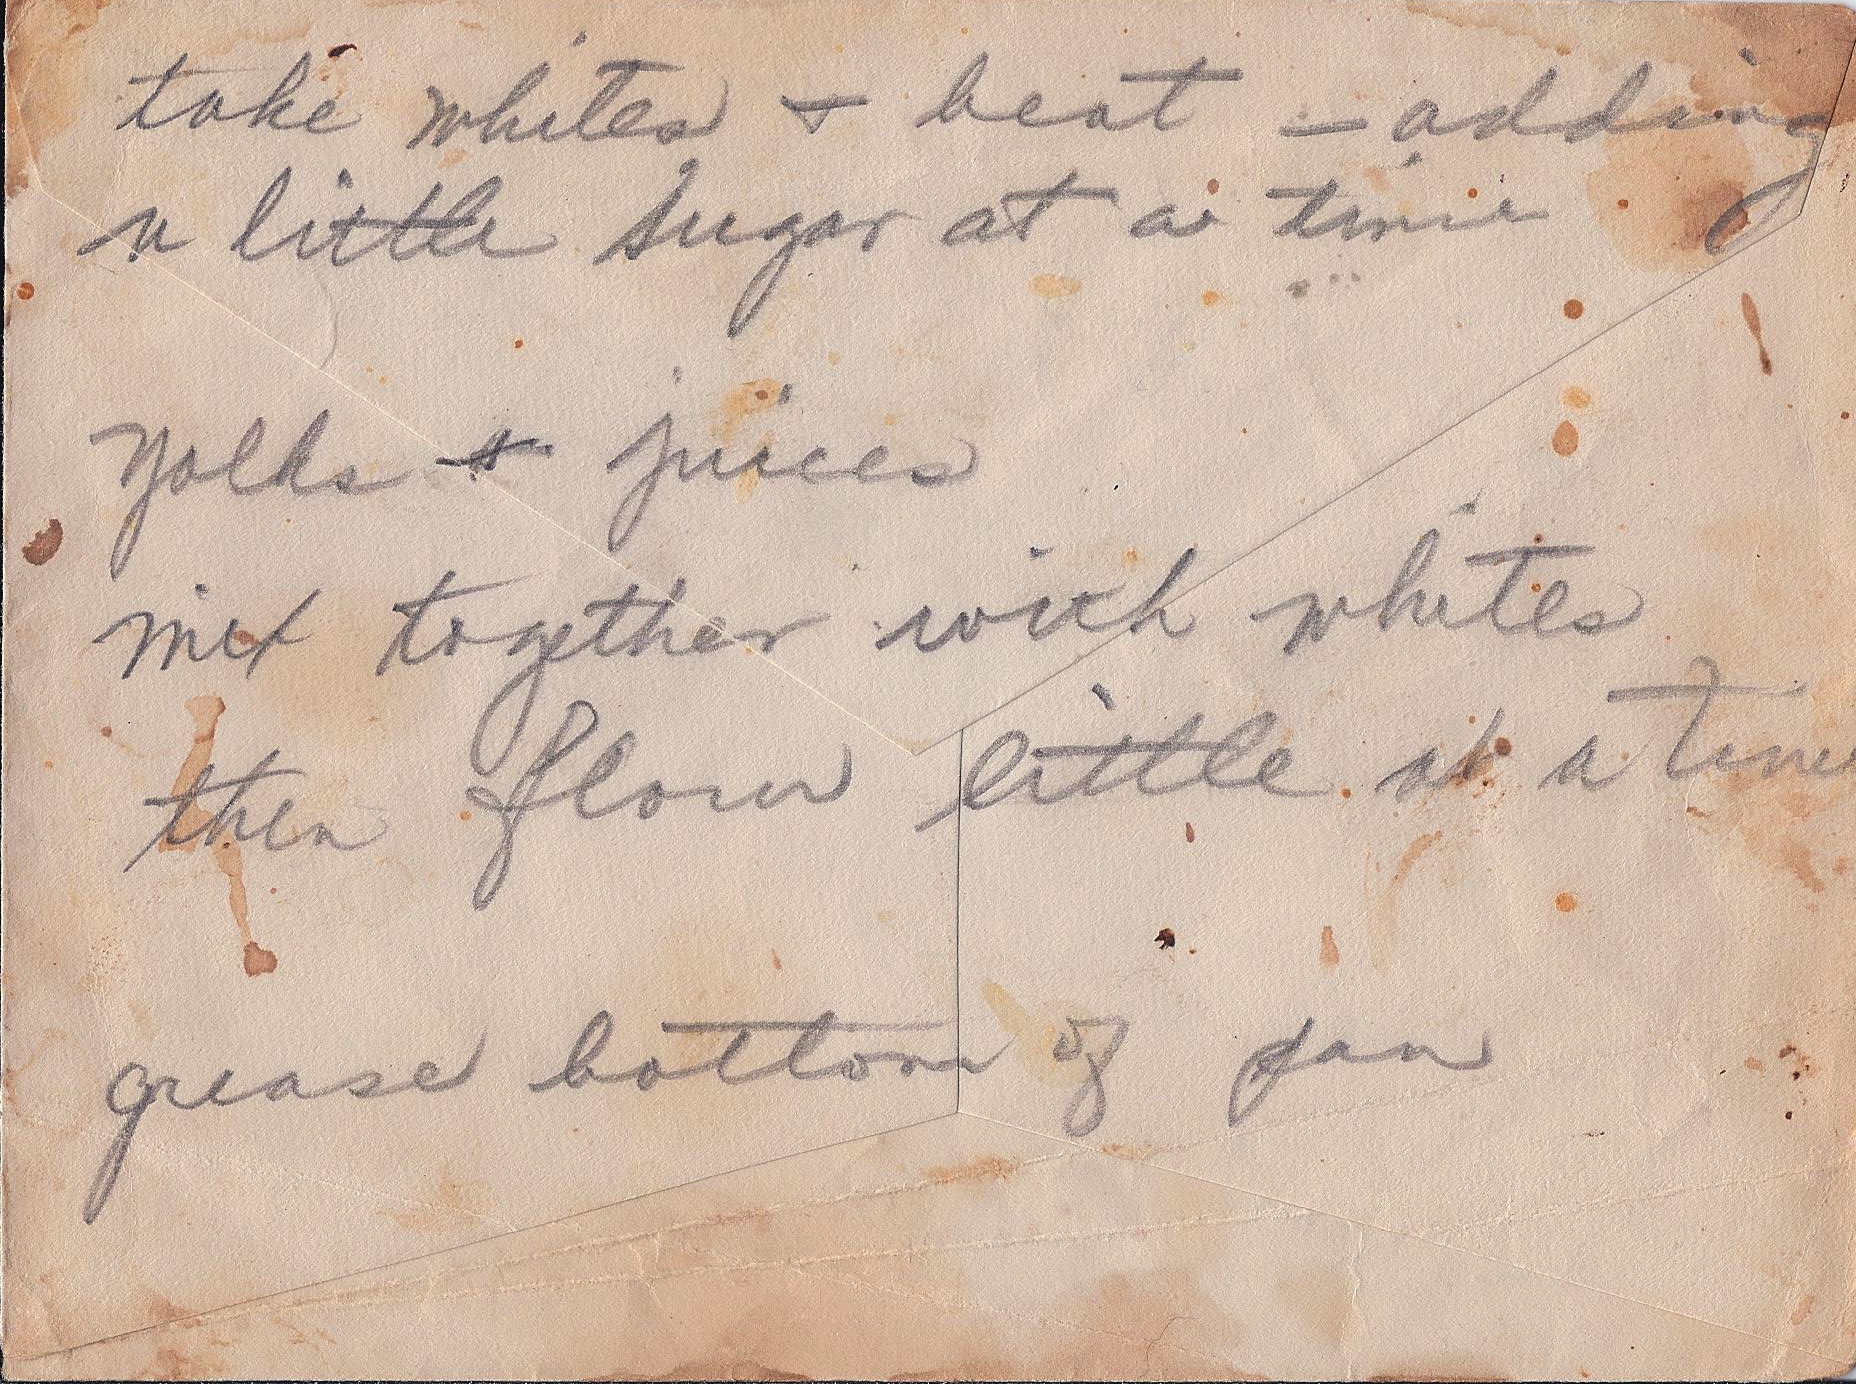 take whites + beat - adding
a little sugar at a time
yolks + juices
mix together with whites
then flour little at a time
grease bottom of pan